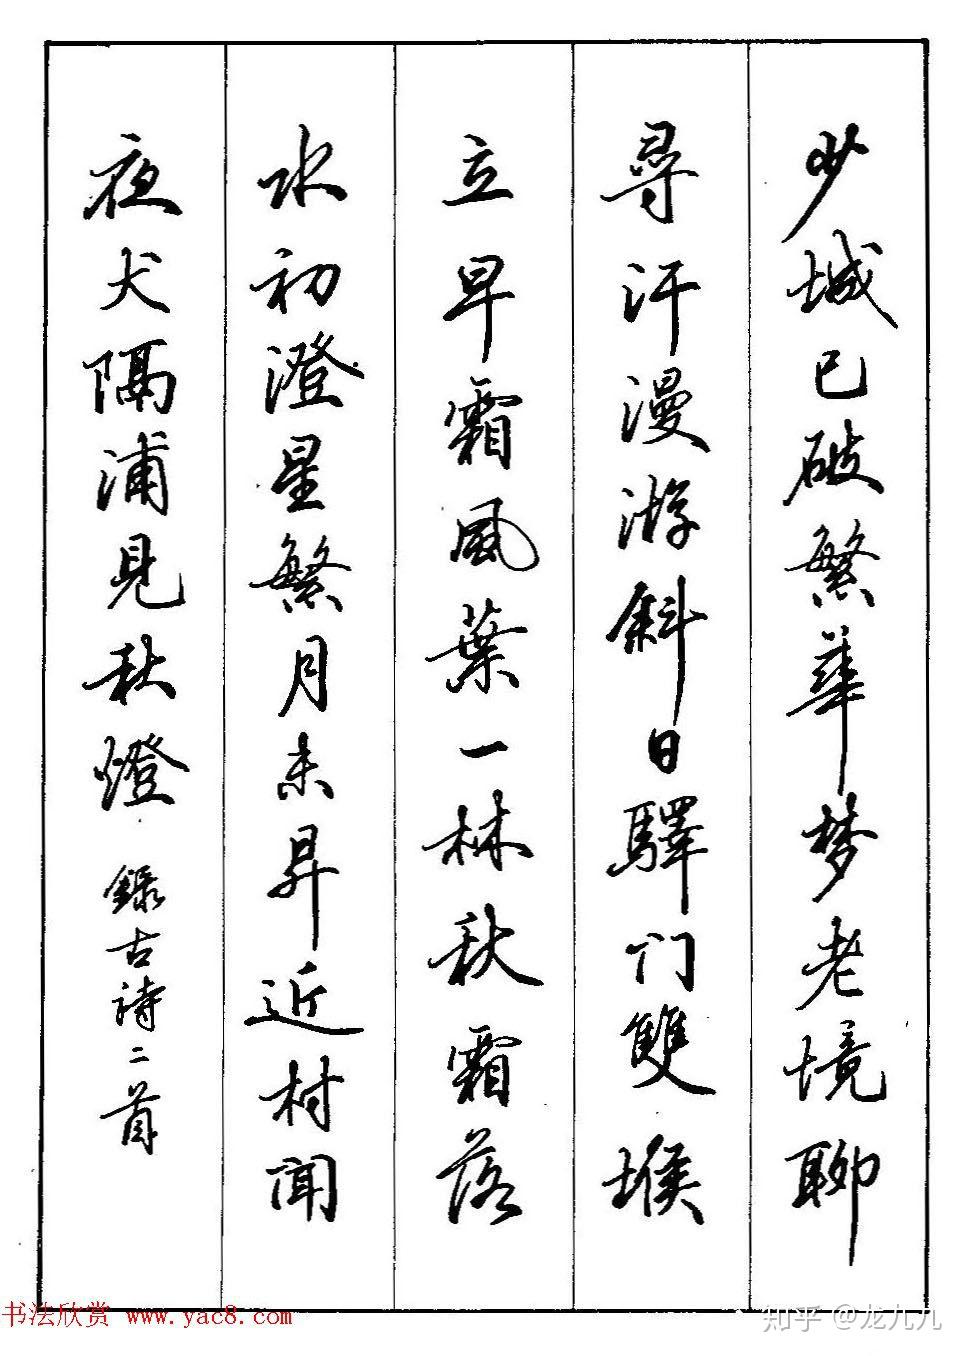 少城已破繁華梦老境聊
尋汗漫游斜日驛门雙堠
立早霜風葉一林秋霜落
水初澄星繁月未昇近村聞
夜犬隔浦見秋燈 錄古诗二首
书法欣赏 www.yac8.com
知乎 @龙九九